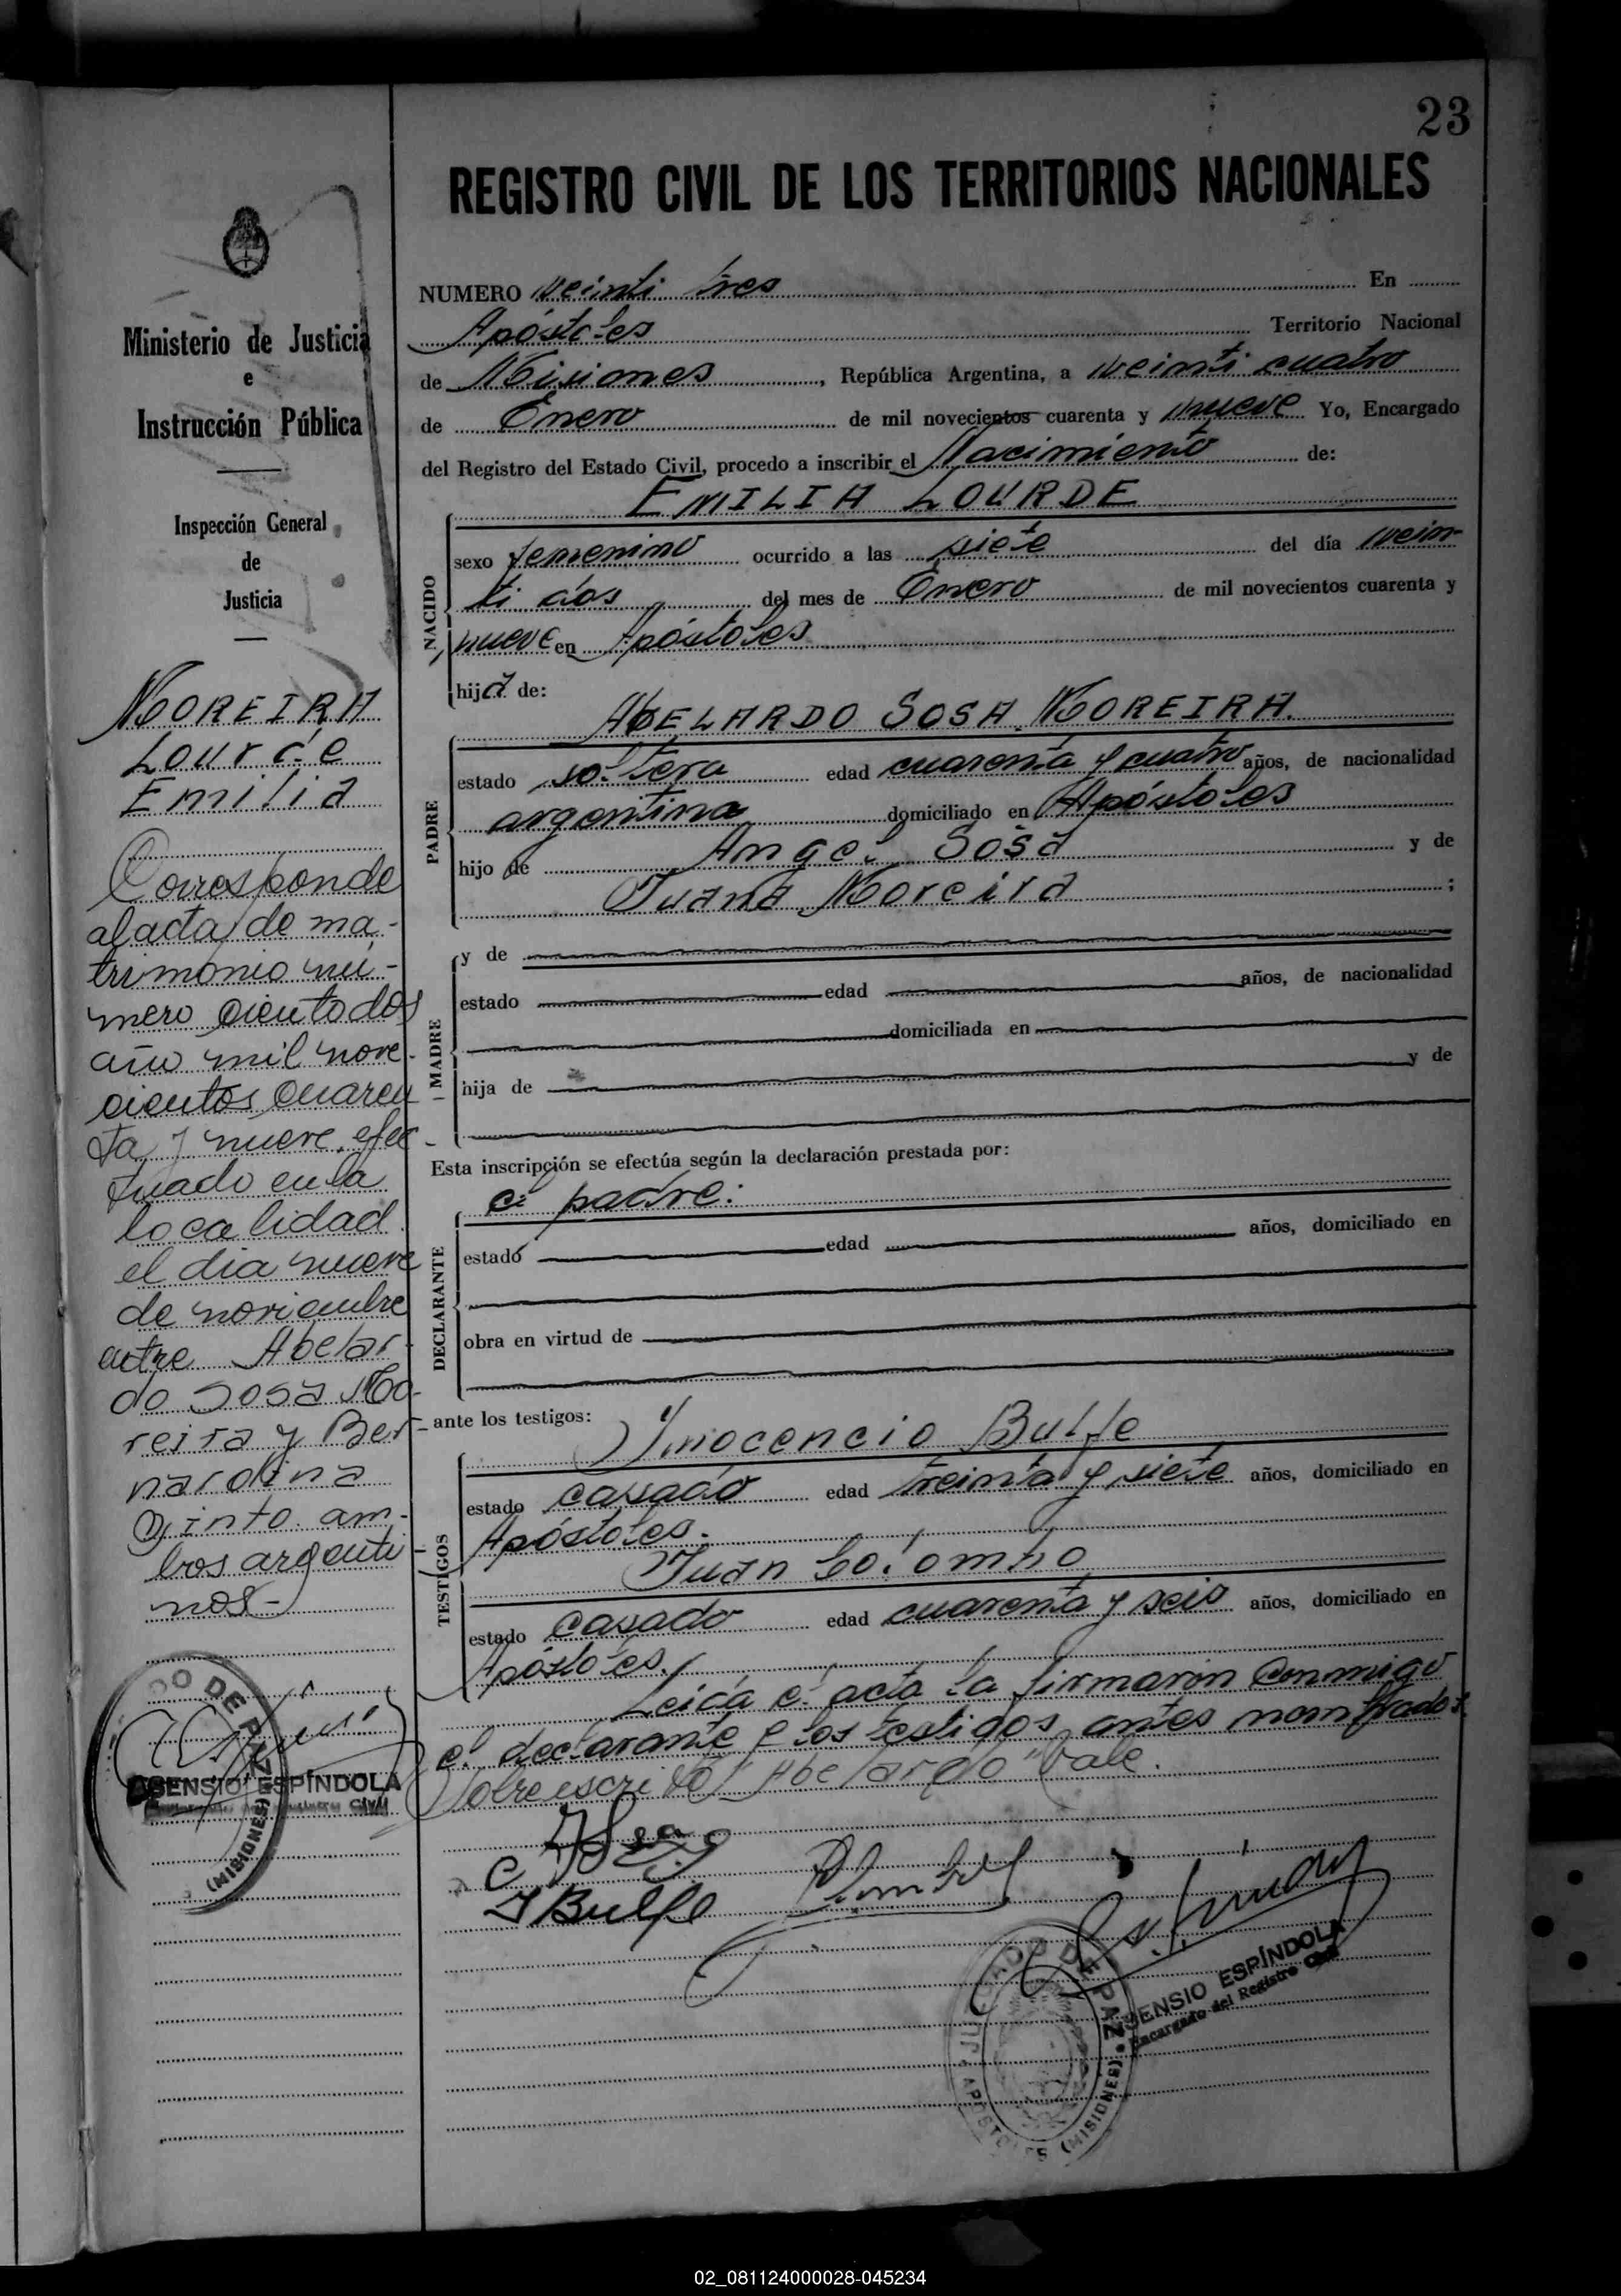 23
REGISTRO CIVIL DE LOS TERRITORIOS NACIONALES
NUMERO Veinti tres En
Apóstoles Territorio Nacional
de Misiones, República Argentina, a veinti cuatro
de Enero de mil novecientos cuarenta y nueve Yo, Encargado
del Registro del Estado Civil, procedo a inscribir el Nacimiento de:
EMILIA LOURDE
NACIDO
sexo femenino ocurrido a las siete del día vein-
ti dos del mes de Enero de mil novecientos cuarenta y
nueve en Apóstoles
hija de:
ABELARDO SOSA MOREIRA.
PADRE
estado soltero edad cuarenta y cuatro años, de nacionalidad
argentina domiciliado en Apóstoles
hijo de Angel Sosa y de
Juana Moreira ;
MADRE
y de
estado edad años, de nacionalidad
domiciliada en
hija de y de
Esta inscripción se efectúa según la declaración prestada por:
el padre:
DECLARANTE
estado edad años, domiciliado en
obra en virtud de
ante los testigos:
Inocencio Bulfe
TESTIGOS
estado casado edad treinta y siete años, domiciliado en
Apóstoles.
Juan Colombo
estado casado edad cuarenta y seis años, domiciliado en
Apóstoles.
Leida el acta la firmaron conmigo
el declarante y los testigos antes nombrados.
Sobreescrito "Abelardo" Vale.
I Bulfe
ASENSIO ESPÍNDOLA
Encargado del Registro Civil
JUZGADO DE PAZ
APOSTOLES (MISIONES)
Ministerio de Justicia
e
Instrucción Pública
Inspección General
de
Justicia
MOREIRA
Lourde
Emilia
Corresponde
al acta de ma-
trimonio nú-
mero ciento dos
año mil nove-
cientos cuaren
ta y nueve, efec-
tuado en la
localidad
el dia nueve
de noviembre
entre Abelar-
do Sosa Mo-
reira y Ber-
nardina
Pinto. am-
bos argenti-
nos-
DO DE PAZ
ASENSIO ESPÍNDOLA
(MISIONES)
02_081124000028-045234